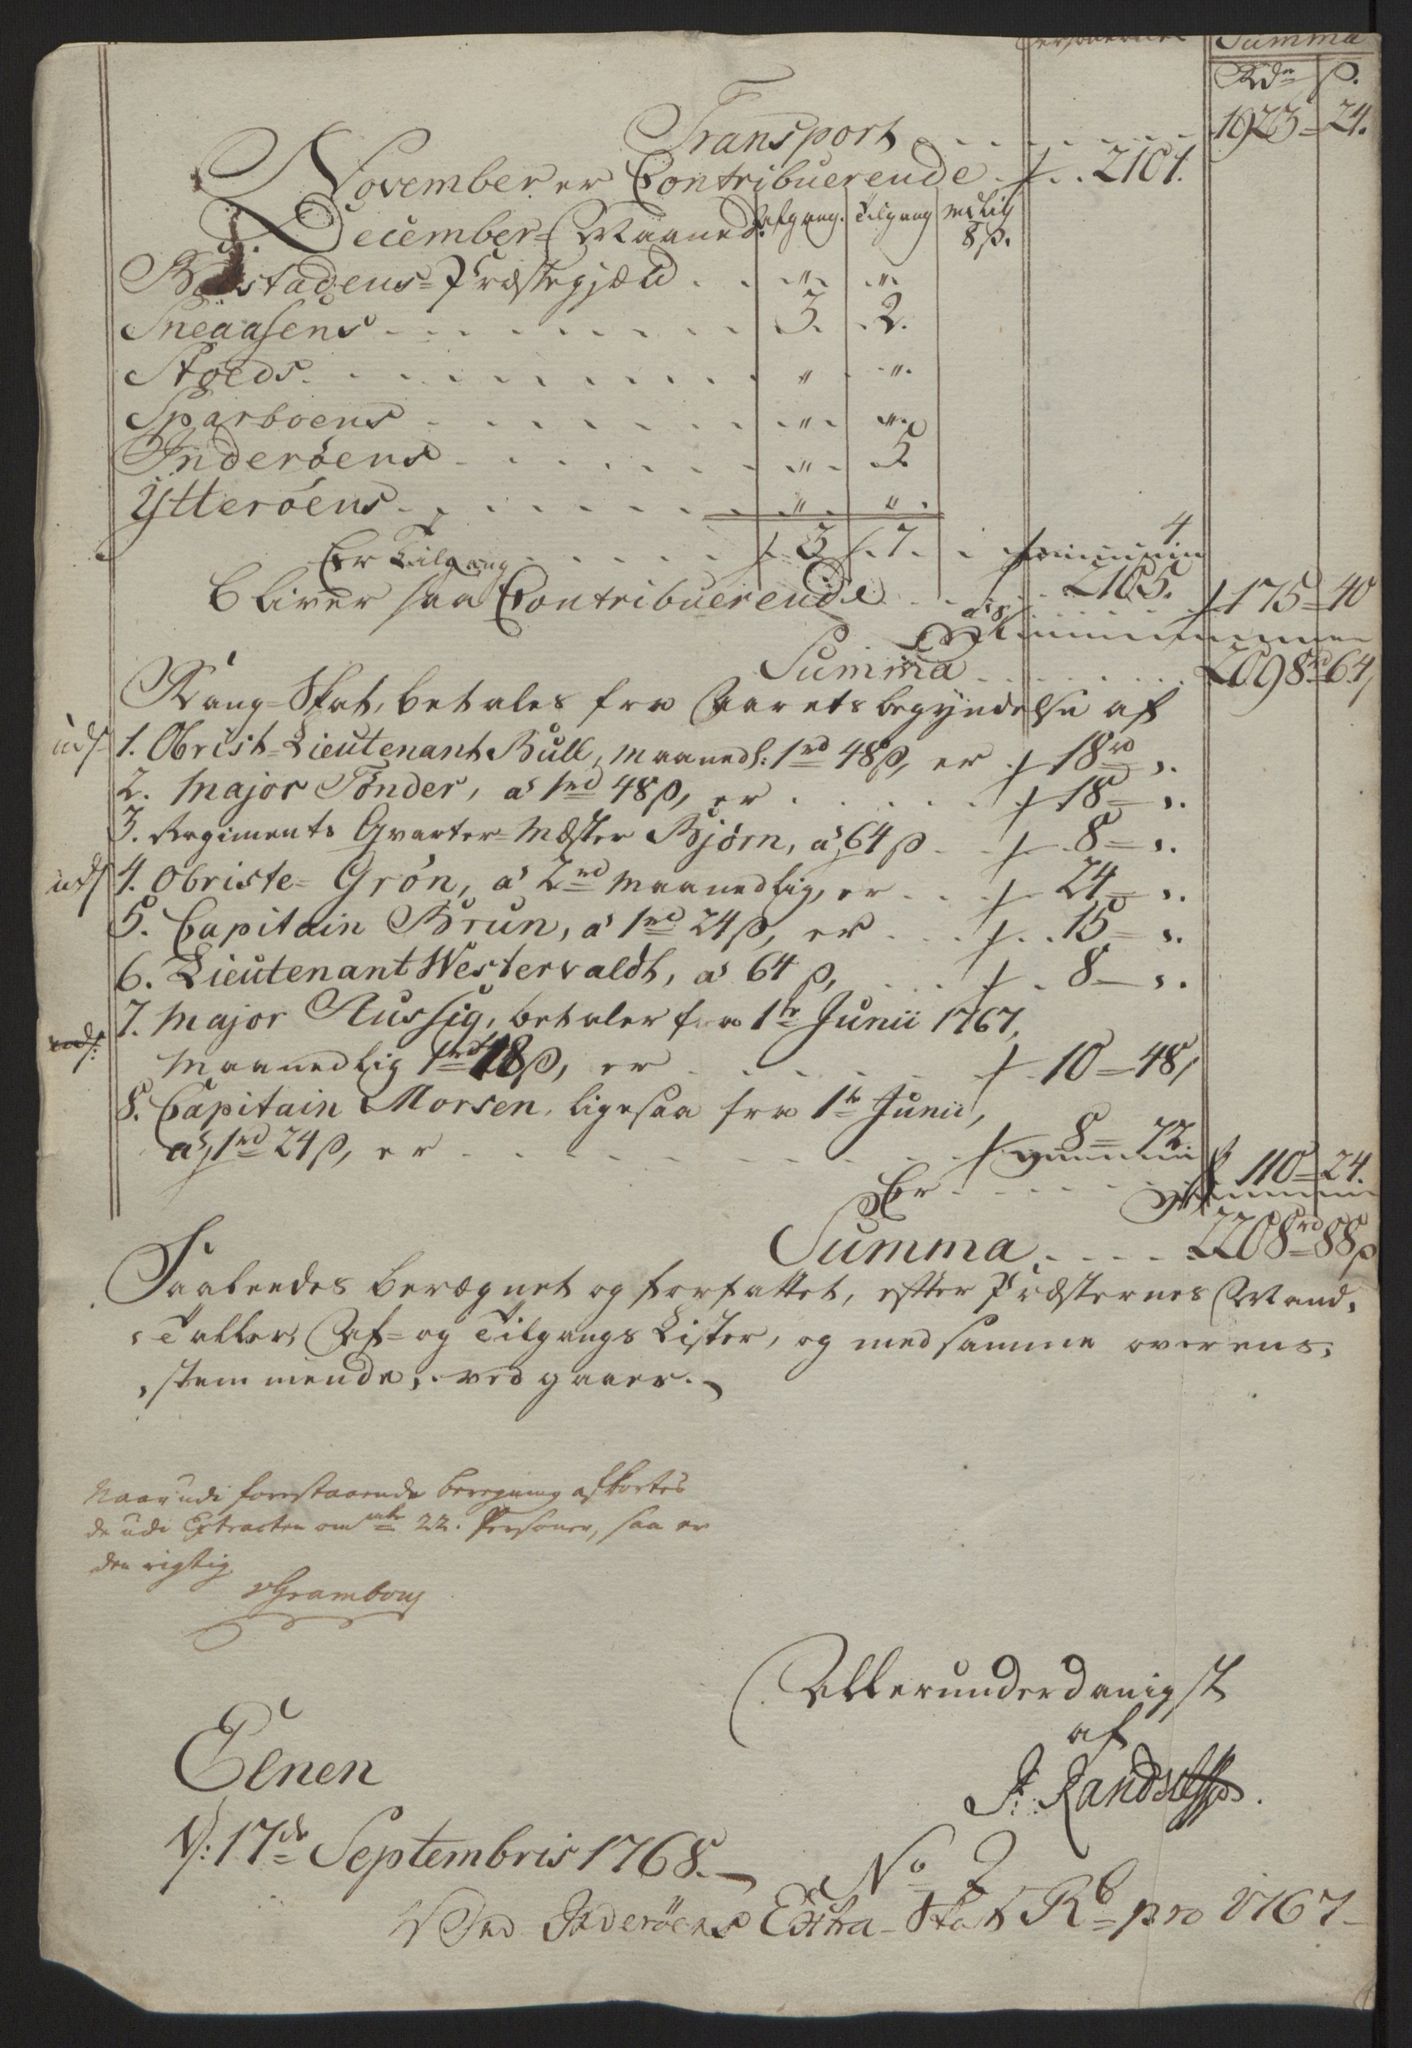 Personerne Summa
Rdr ß.
Transport . . . . . . 1923 = 24.
November er Contribuerende . . 2101.
December = Maaned. Afgang. Tilgang mdlig 8 ß.
stadens = Præstegjæld . . . " . . " .
Sneaasens . . . . . . 3. . 2.
Stoeds . . . . . . " . " .
Sparboens . . . . . . " . " .
Inderøens . . . . . . " . 5
Ytterøens . . . . . . " . " .
Er Tilgang . . . . . 3 . 7 . . 4
bliver saa Contribuerende . . . 2105. 175 = 40
Summa . . . . . . 2098 rd 64,
Rang = Skat, betales fra Aarets begyndelse af
uds 1. Obrist = Lieutenant Bull, maanedl: 1 rd 48 ß, er . 18 rd = ,.
2. Major Tønder, a 1 rd 48 ß, er . . . . . 18 = ,.
3. Regiments Qvarter = Mæster Bjørn, a 64 ß . . 8 = ,.
uds 4. Obriste = Grøn, a 2 rd maanedlig, er . . . 24 = ,.
5. Capitain Brun, a 1 rd 24 ß, er . . . 15 = ,.
6. Lieutenant Westervaldt, a 64 ß, . . . 8 = ,.
7. Major Russig, betaler fra 1te Junii 1767,
uds: maanedlig 1 rd 48 ß, er . . . . . 10 = 48,
8. Capitain Morsen, ligesaa fra 1te Junii,
a 1 rd 24 ß, er . . . . . . 8 = 72.
Er . . . . 110 = 24.
Summa . . . . 2208 rd 88 ß
Saaledes beregnet og forfattet, efter Præsternes Mand,
, Taller, Af = og Tilgangs Lister, og med samme overens,
, stemmende, vedgaaer.
Naar udi forestaaende beregning afkortes
de udi Extracten om 22. Personer, saa er
den rigtig
Grambou
Allerunderdanigst
af
J: Rand
Elnen
d: 17de Septembris 1768.
No 2
Ved Inderøens Extra = Skat Rb = pro 1767